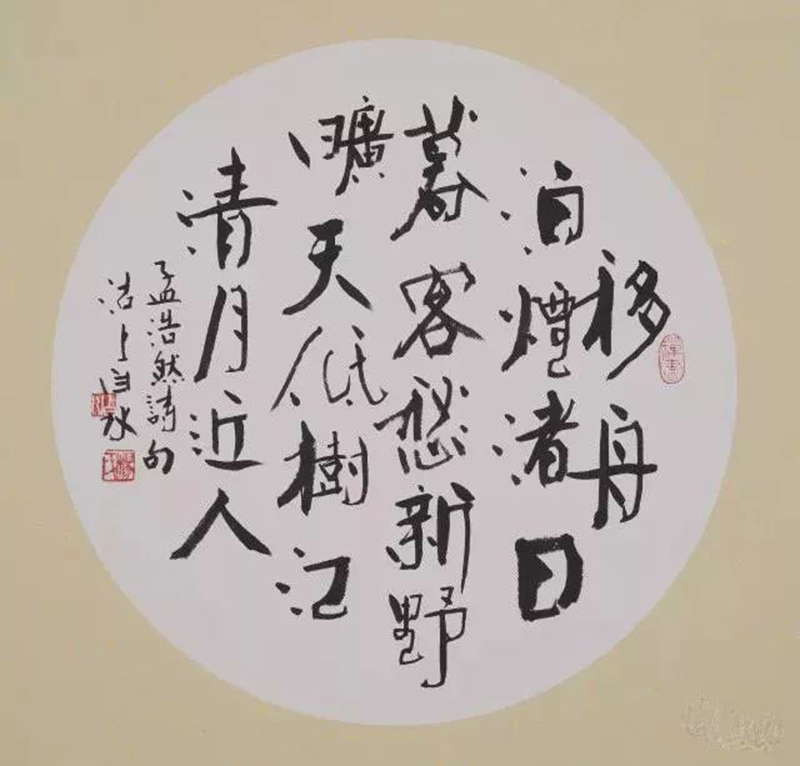 移舟
泊煙渚日
暮客愁新野
曠天低樹江
清月近人
孟浩然詩句
沽上